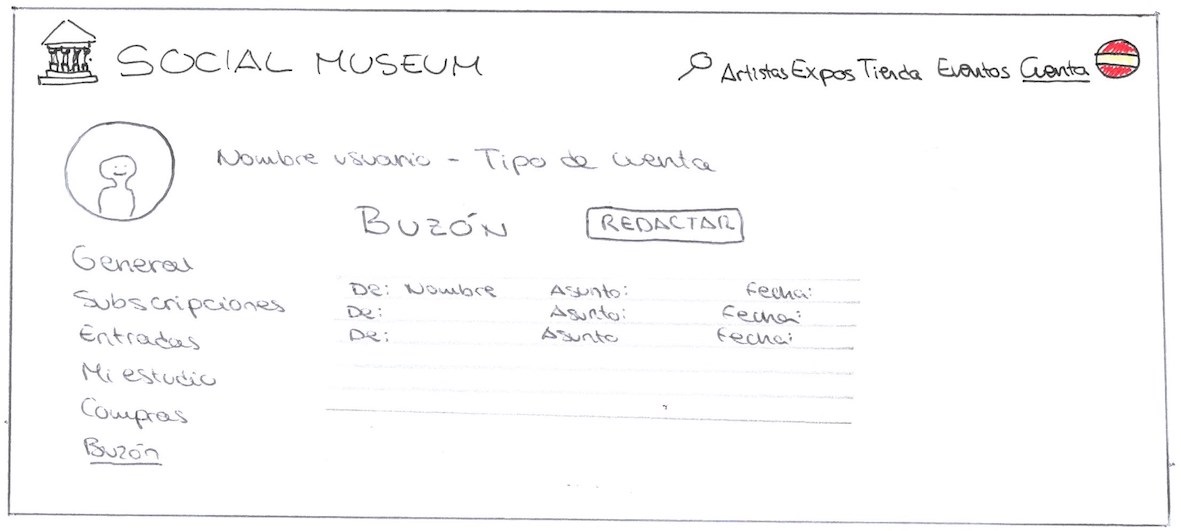 SOCIAL MUSEUM
Artistas Expos Tienda Eventos Cuenta
Nombre usuario - Tipo de cuenta
BUZÓN REDACTAR
General
Subscripciones
Entradas
Mi estudio
Compras
Buzón
De: Nombre Asunto: Fecha:
De: Asunto: Fecha:
De: Asunto Fecha: